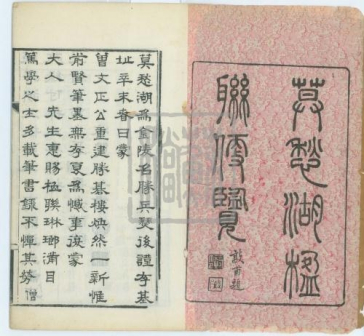 莫愁湖楹
聯便覽
莫愁湖爲金陵名勝兵燹後譚存基
址辛未春日蒙
曾文正公重建勝棊樓煥然一新惟
常賢筆墨無存寔爲憾事後蒙
大人先生惠賜楹聯琳瑯滿目
篤學之士多載筆書錄不憚其勞僧